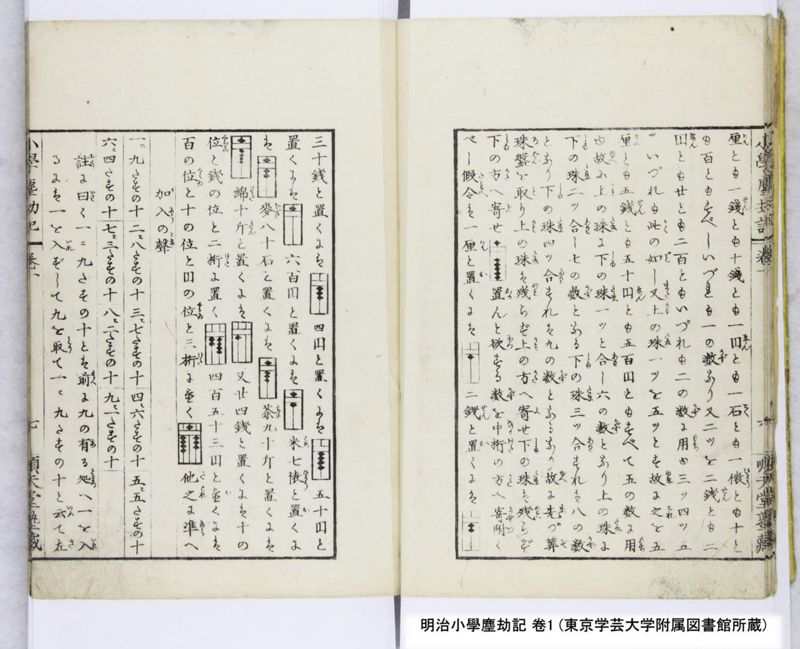 小學塵劫記 卷一
厘とも一錢とも十錢とも一円とも一石とも一俵とも十と
も百ともすべしいづれも一の数なり又二ツを二錢とも二
円とも廿とも二百ともいづれも二の数に用ゆ三ツ四ツ五
ツいづれも此の如し又上の珠一ツを五ツとす故に之を五
厘とも五錢とも五十円とも五百円ともすべて五の数に用
ゆ故に上の珠に下の珠一ッと合し六の数となり上の珠に
下の珠二ッ合し七の数となる下の珠三ッ合すれば八の数
となり下の珠四ッ合すれば九の数となるなり故に先づ算
珠盤を取り上の珠を残らず上の方へ寄せ下の珠を残らず
下の方へ寄せ置んと欲する数を中桁の方へ寄附く
べし假令ば一厘と置くには二錢と置くには
三十錢と置くには四円と置くには五十円と
置くには六百円と置くには米七俵と置くに
は麥八十石と置くには茶九十斤と置くには
綿十斤と置くには又廿四錢と置くには十の
位と錢の位と二桁に置く四百五十三円と置くには
百の位と十の位と円の位と三桁に置く他之に準へ
加入の聲
一ニ九たすの十二ニ八たすの十三ニ七たすの十四ニ六たすの十五ニ五たすの十
六ニ四たすの十七ニ三たすの十八ニ二たすの十九ニ一たすの十
註に曰く一ニ九たすの十とは前に九の有る処へ一を入
るには一を入ずして九を取て一ニ九たすの十と云て左
小學塵劫記 卷一 七 順天堂塾藏
明治小學塵劫記 巻1 (東京学芸大学附属図書館所蔵)